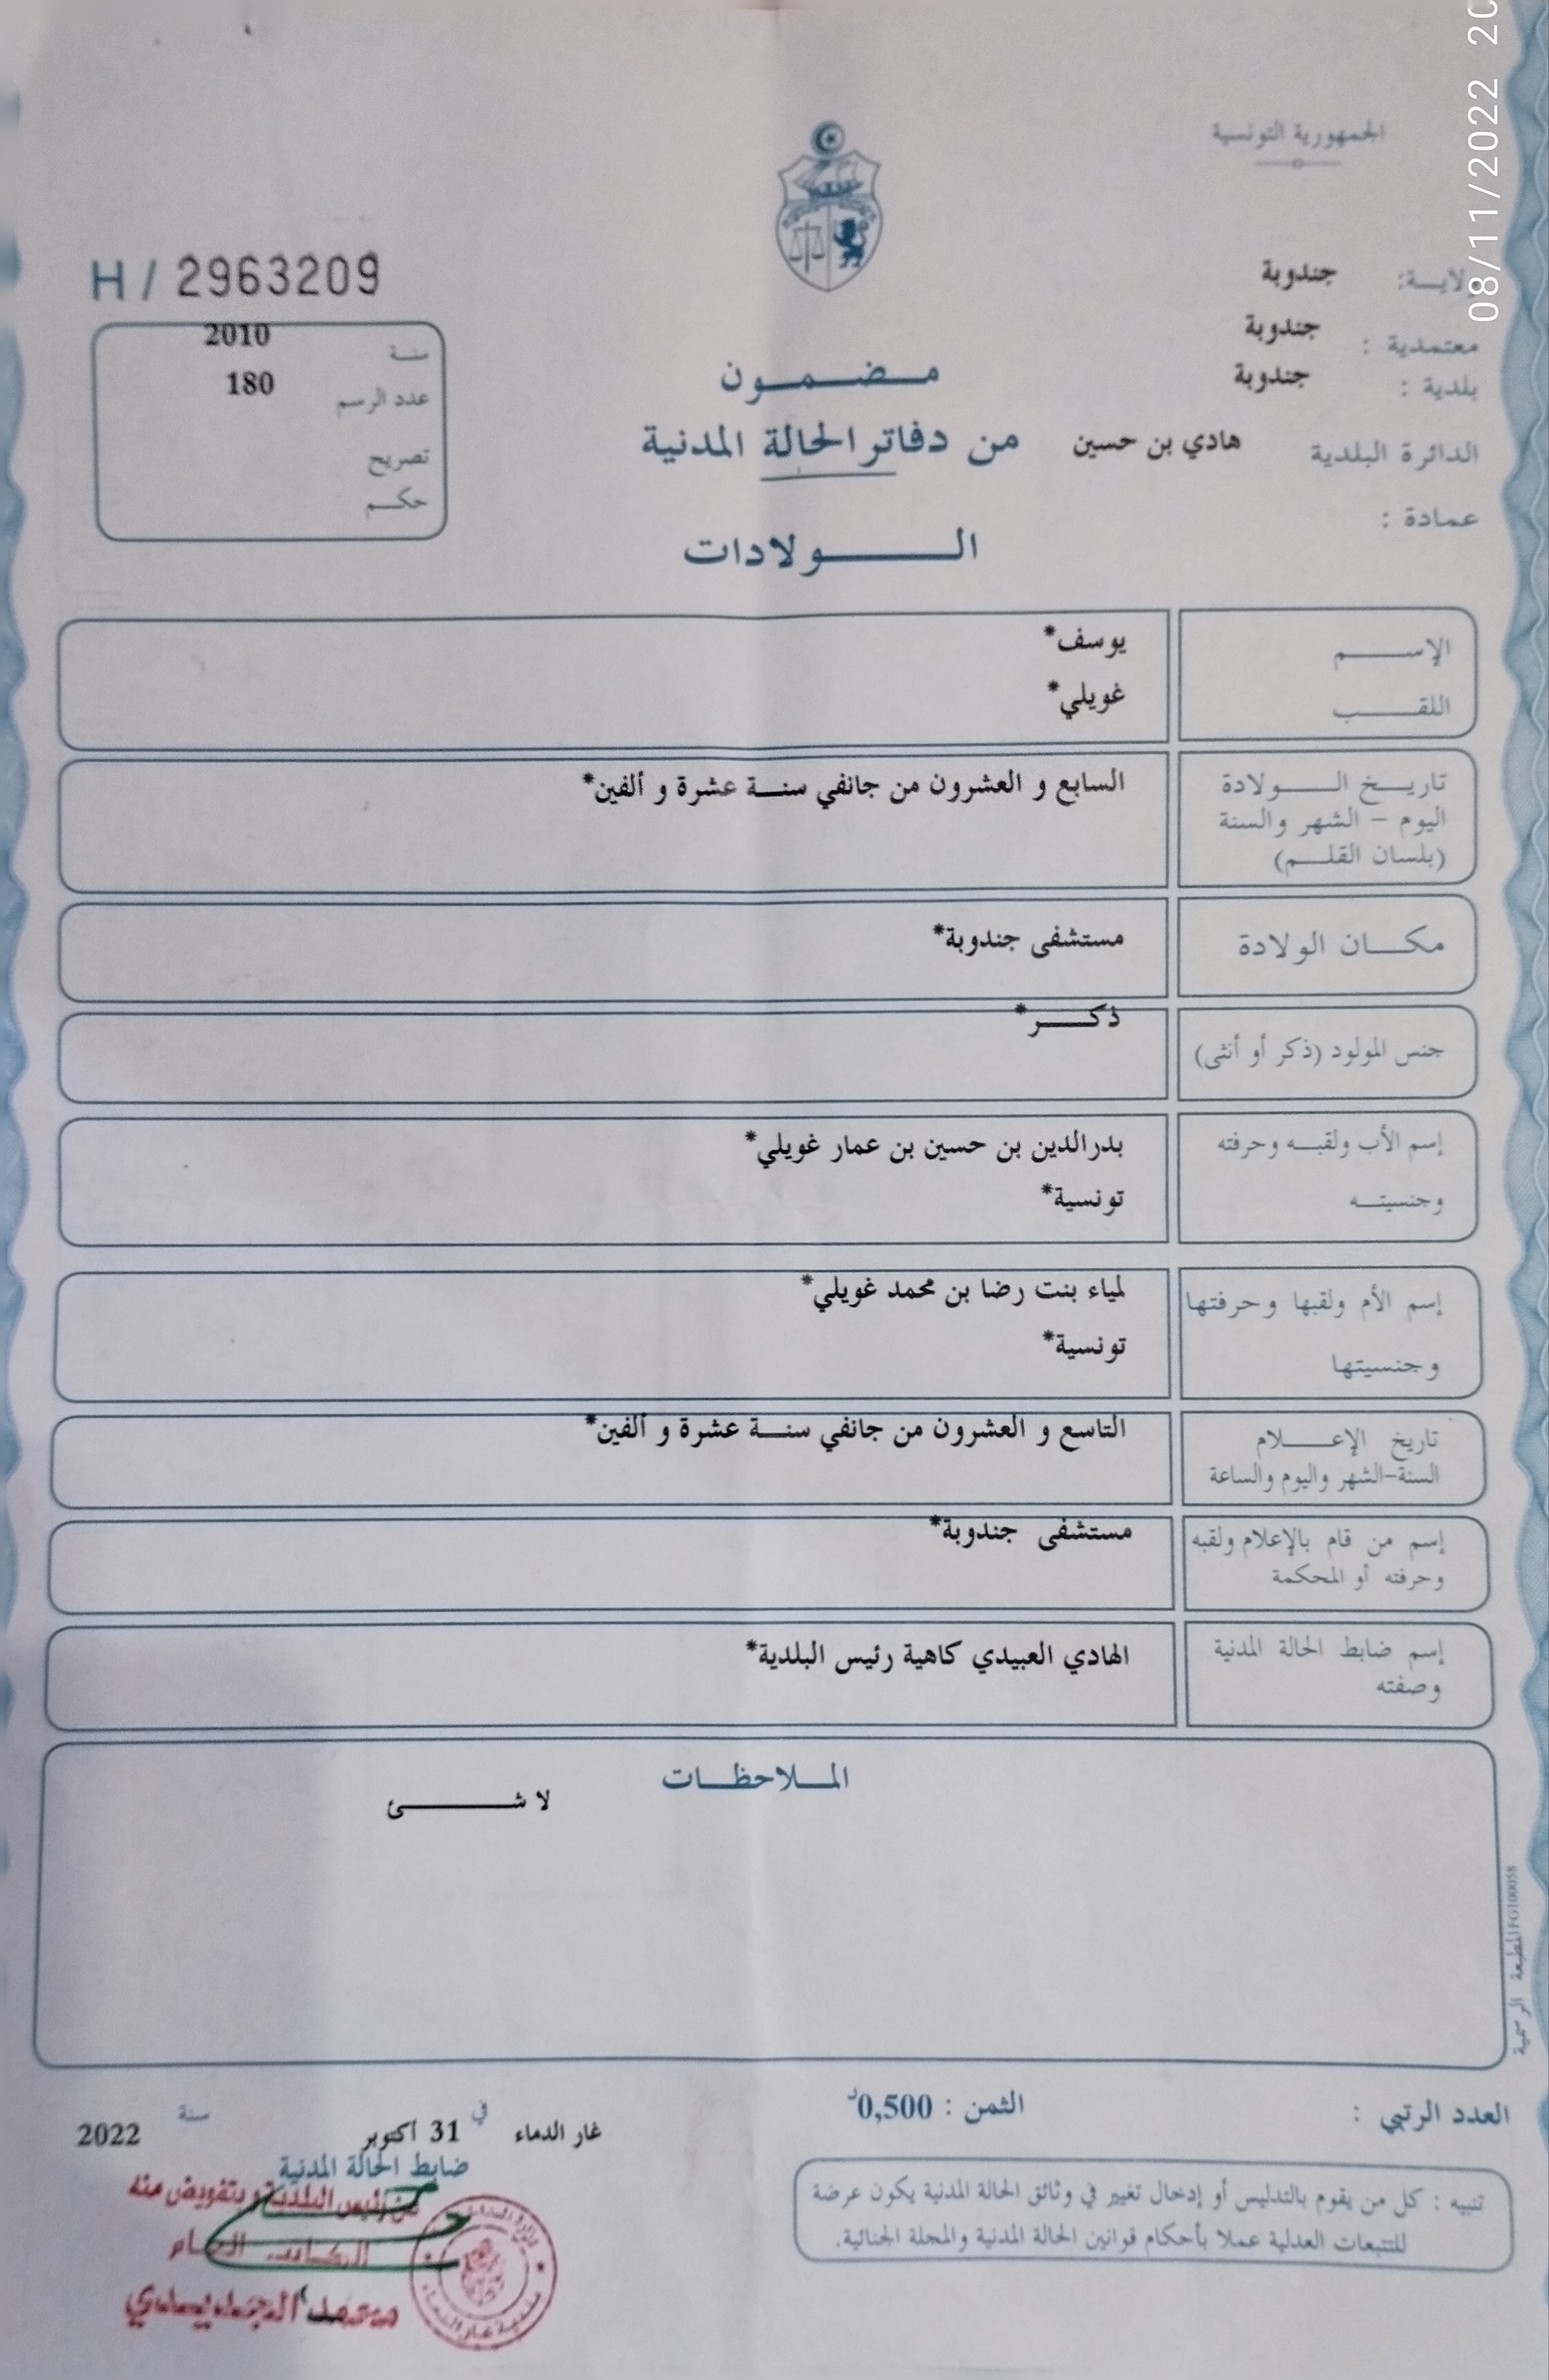 الجمهورية التونسية
08/11/2022 20
H / 2963209
ولايـة: جندوبة
معتمدية : جندوبة
بلدية : جندوبة
الدائرة البلدية هادي بن حسين
عمادة :
سنة 2010
عدد الرسم 180
تصريح
حكم
مضمون
من دفاتر الحالة المدنية
الولادات
الإسم يوسف*
اللقب غويلي*
تاريخ الولادة السابع و العشرون من جانفي سنة عشرة و ألفين*
اليوم - الشهر والسنة
(بلسان القلم)
مكان الولادة مستشفى جندوبة*
جنس المولود (ذكر أو أنثى) ذكر*
إسم الأب ولقبه وحرفته بدرالدين بن حسين بن عمار غويلي*
وجنسيته تونسية*
إسم الأم ولقبها وحرفتها لمياء بنت رضا بن محمد غويلي*
وجنسيتها تونسية*
تاريخ الإعلام التاسع و العشرون من جانفي سنة عشرة و ألفين*
السنة-الشهر واليوم والساعة
إسم من قام بالإعلام ولقبه مستشفى جندوبة*
وحرفته أو المحكمة
إسم ضابط الحالة المدنية الهادي العبيدي كاهية رئيس البلدية*
وصفته
الملاحظات
لا شئ
المطبعة الرسمية FG100058
العدد الرتبي :
الثمن : 0,500د
غار الدماء في 31 أكتوبر سنة 2022
ضابط الحالة المدنية
عن رئيس البلدية و بتفويض منه
الكاتب العام
تنبيه : كل من يقوم بالتدليس أو إدخال تغيير في وثائق الحالة المدنية يكون عرضة
للتتبعات العدلية عملا بأحكام قوانين الحالة المدنية والمجلة الجنائية.
بلدية غار الدماء